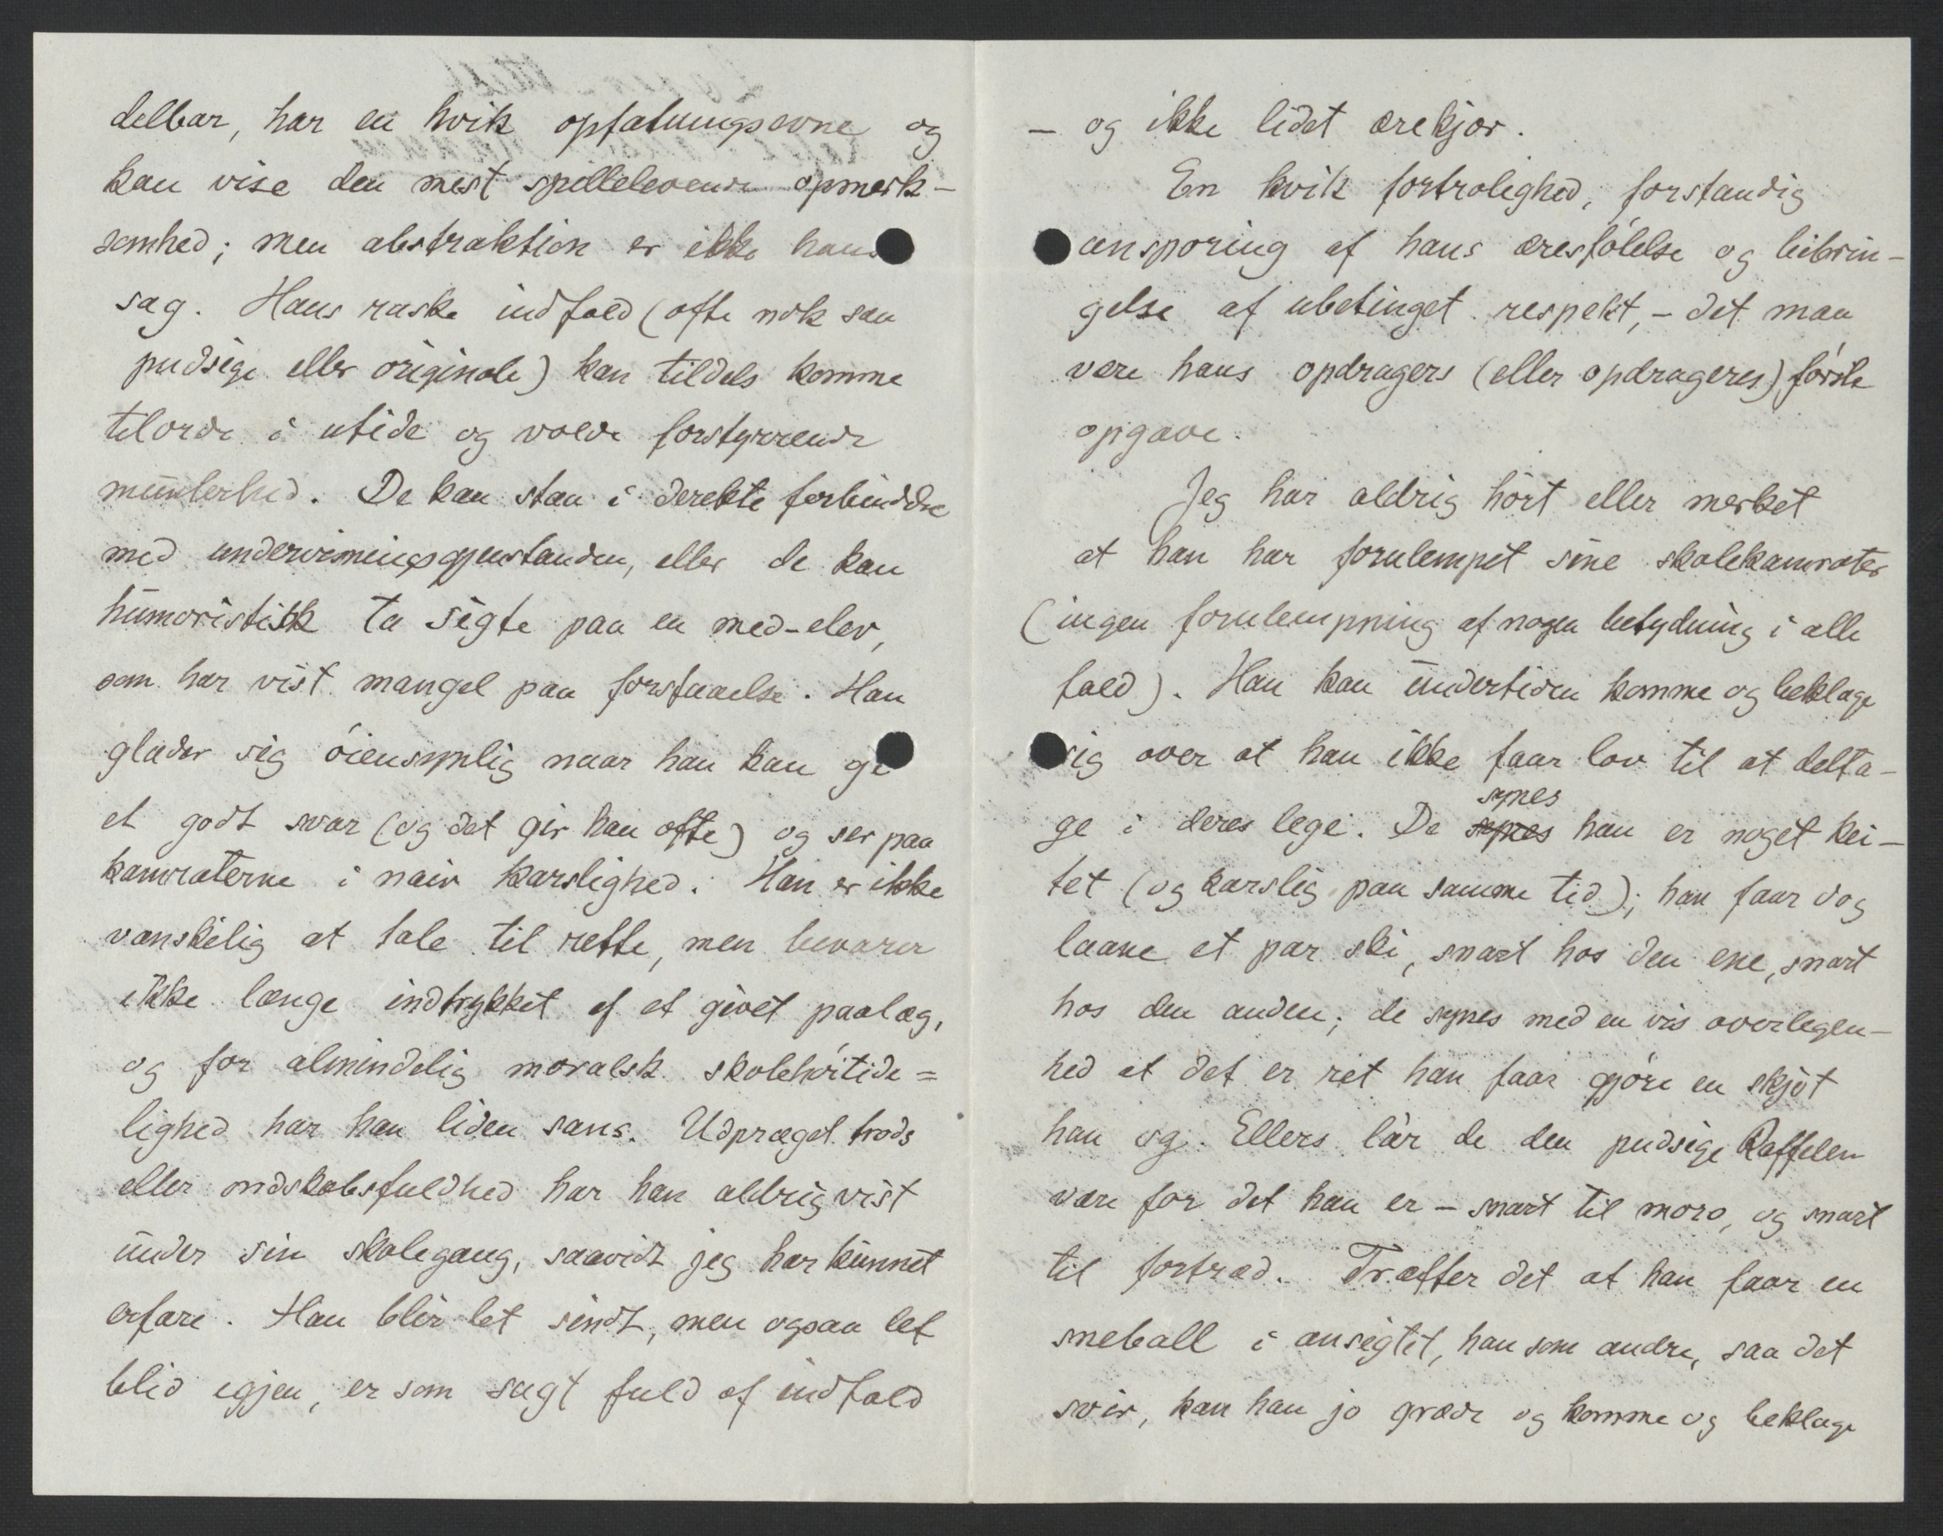 delbar, har en kvik opfatningsevne og
kan vise den mest spillelevende opmerk-
somhed; men abstraktion er ikke hans
sag. Hans raske indfald (ofte nok saa
pudsige eller originale) kan tildels komme
tilorde i utide og volde forstyrrende
munterhed. De kan staa i derekte forbindelse
med undervisningsgjenstanden, eller de kan
humoristisk ta sigte paa en med-elev,
som har vist mangel paa forstaaelse. Han
glæder sig öiensynlig naar han kan gi
et godt svar (og det gir han ofte) og ser paa
kamraterne i naiv karslighed. Han er ikke
vanskelig at tale til rette, men bevarer
ikke længe indtrykket af et givet paalæg,
og for almindelig moralsk skolehöitide=
lighed har han liden sans. Udpræget trods
eller ondskabsfuldhed har han aldrig vist
under sin skolegang, saavidt jeg har kunnet
erfare. Han blir let sindt, men ogsaa let
blid igjen, er som sagt fuld af indfald
– og ikke lidet ærekjær.
En kvik fortrolighed, forstandig
ansporing af hans æresfölelse og bibrin-
gelse af ubetinget respekt, – det maa
være hans opdragers (eller opdrageres) förste
opgave.
Jeg har aldrig hört eller merket
at han har forulempet sine skolekamrater
(ingen forulempning af nogen betydning i alle
fald). Han kan undertiden komme og beklage
sig over at han ikke faar lov til at delta-
ge i deres lege. De synes han er noget kei-
tet (og karslig paa samme tid); han faar dog
laane et par ski, snart hos den ene, snart
hos den anden; de synes med en vis overlegen-
hed at det er ret han faar gjöre en skjöt
han og. Ellers lar de den pudsige Raffelen
være for det han er – snart til moro, og snart
til fortræd. Træffer det at han faar en
sneball i ansigtet, han som andre, saa det
svir, kan han jo græde og komme og beklage